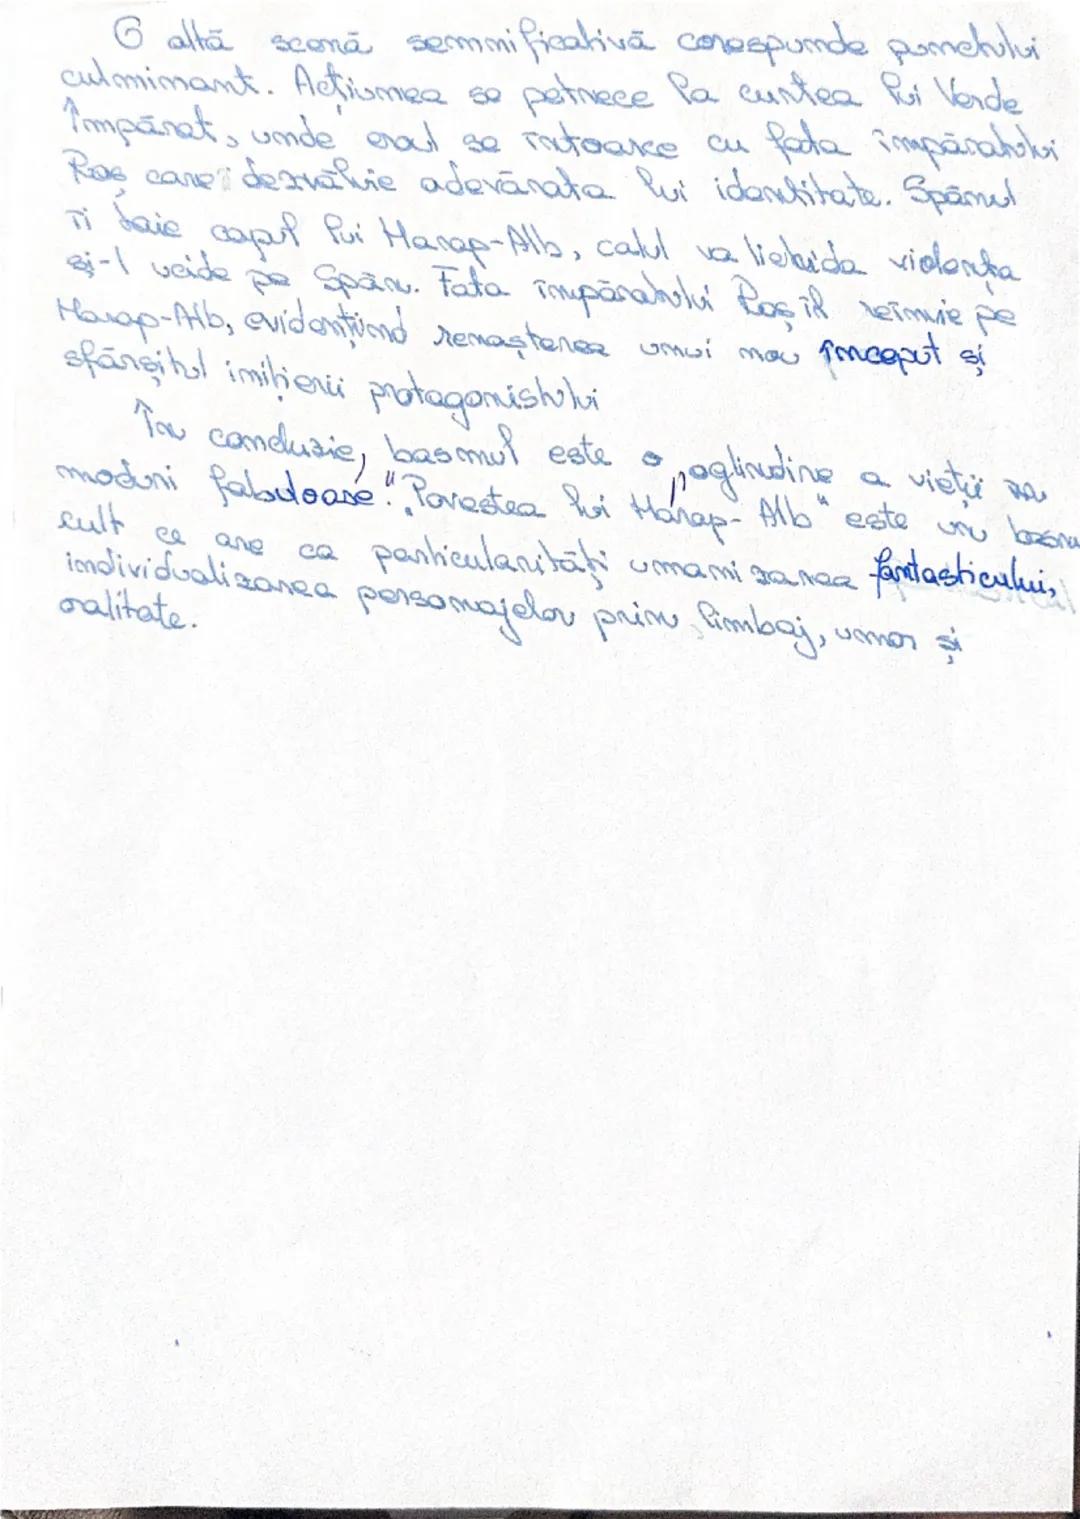 O altă scenă semnificativă corespunde punctului
culminant. Acțiunea se petrece la curtea lui Verde
Împărat, unde eroul se întoarce cu fata împăratului
Roș care îi dezvăluie adevărata lui identitate. Spânul
îi taie capul lui Harap-Alb, calul va lichida violența
și-l ucide pe Spân. Fata împăratului Roș îl reînvie pe
Harap-Alb, evidențiind renașterea unui nou început și
sfârșitul inițierii protagonistului
În concluzie, basmul este o „oglindire a vieții în
moduri fabuloase". „Povestea lui Harap-Alb" este un basm
cult ce are ca particularități umanizarea fantasticului,
individualizarea personajelor prin limbaj, umor și
oralitate.